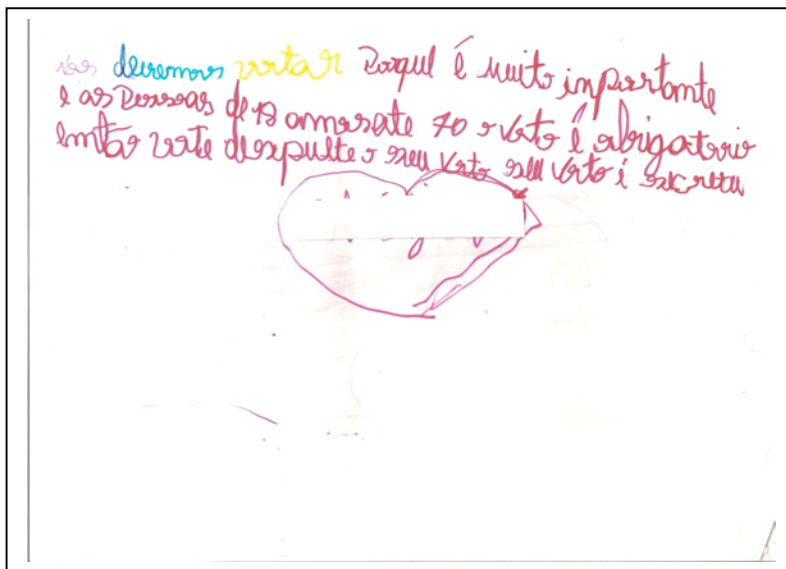 nos devemos votar Porqui é muito inportante
e as Pessoas de 18 anos ate 70 o voto é obrigatorio
então vote despulte o seu voto seu voto é secretu